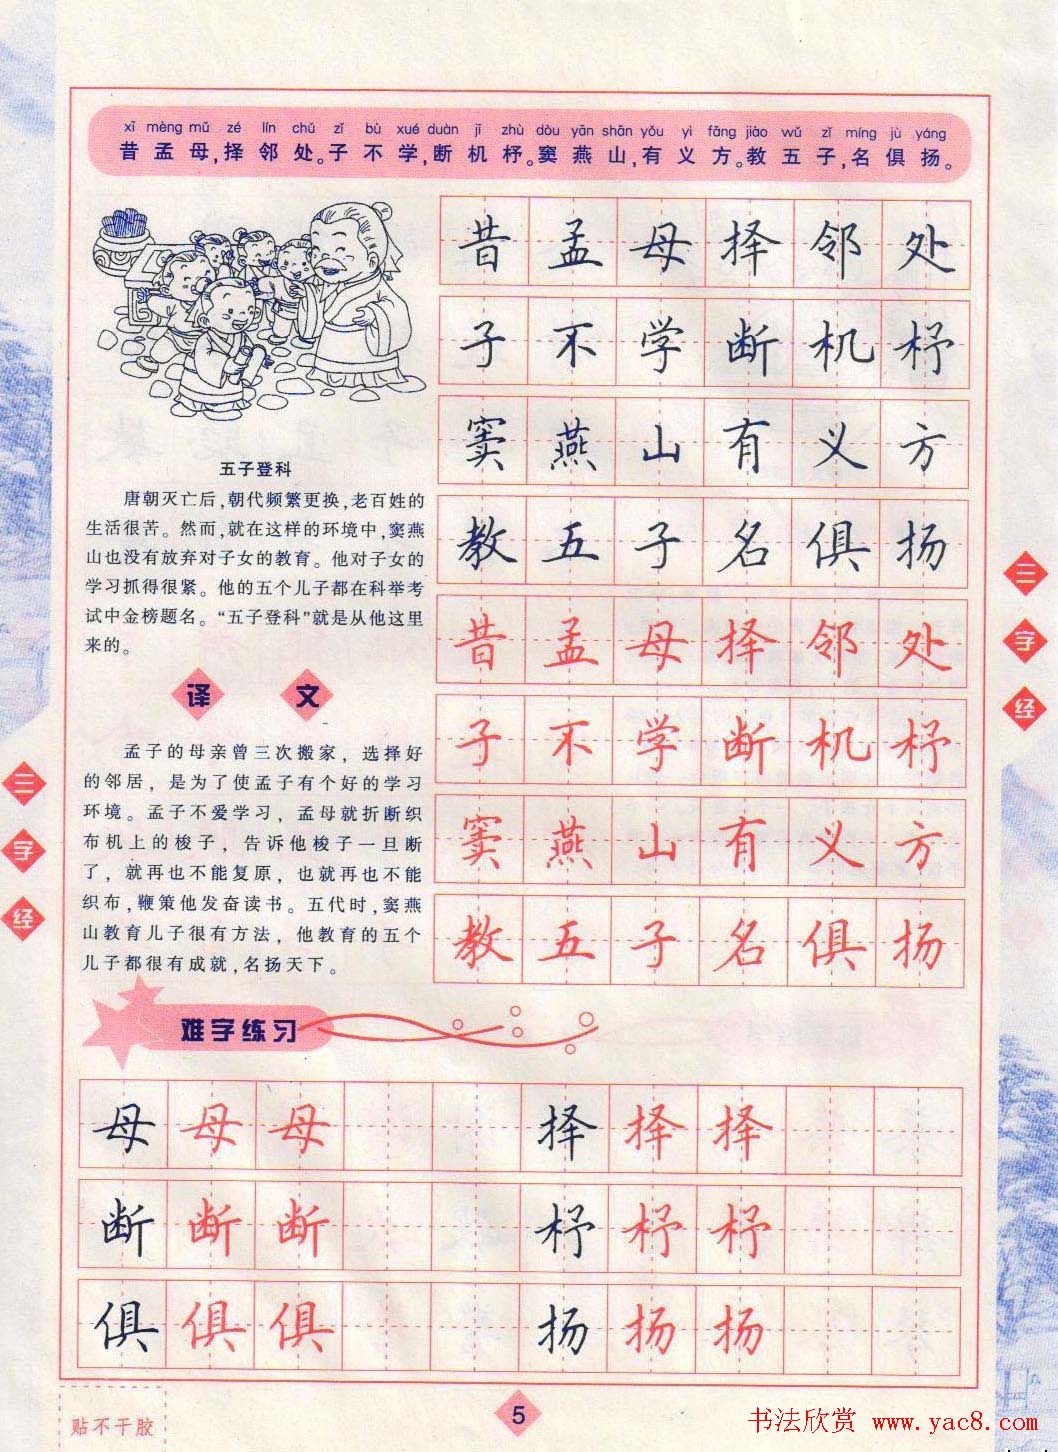 xī mèng mǔ zé lín chǔ zǐ bù xué duàn jī zhù dòu yān shān yǒu yì fāng jiào wǔ zǐ míng jù yáng
昔孟母,择邻处。子不学,断机杼。窦燕山,有义方。教五子,名俱扬。
昔孟母择邻处
子不学断机杼
窦燕山有义方
教五子名俱扬
昔孟母择邻处
子不学断机杼
窦燕山有义方
教五子名俱扬
五子登科
唐朝灭亡后,朝代频繁更换,老百姓的
生活很苦。然而,就在这样的环境中,窦燕
山也没有放弃对子女的教育。他对子女的
学习抓得很紧。他的五个儿子都在科举考
试中金榜题名。“五子登科”就是从他这里
来的。
译文
孟子的母亲曾三次搬家，选择好
的邻居，是为了使孟子有个好的学习
环境。孟子不爱学习，孟母就折断织
布机上的梭子，告诉他梭子一旦断
了，就再也不能复原，也就再也不能
织布,鞭策他发奋读书。五代时,窦燕
山教育儿子很有方法，他教育的五个
儿子都很有成就,名扬天下。
三字经
三字经
难字练习
母母母 择择择
断断断 杼杼杼
俱俱俱 扬扬扬
贴不干胶
5
书法欣赏 www.yac8.com